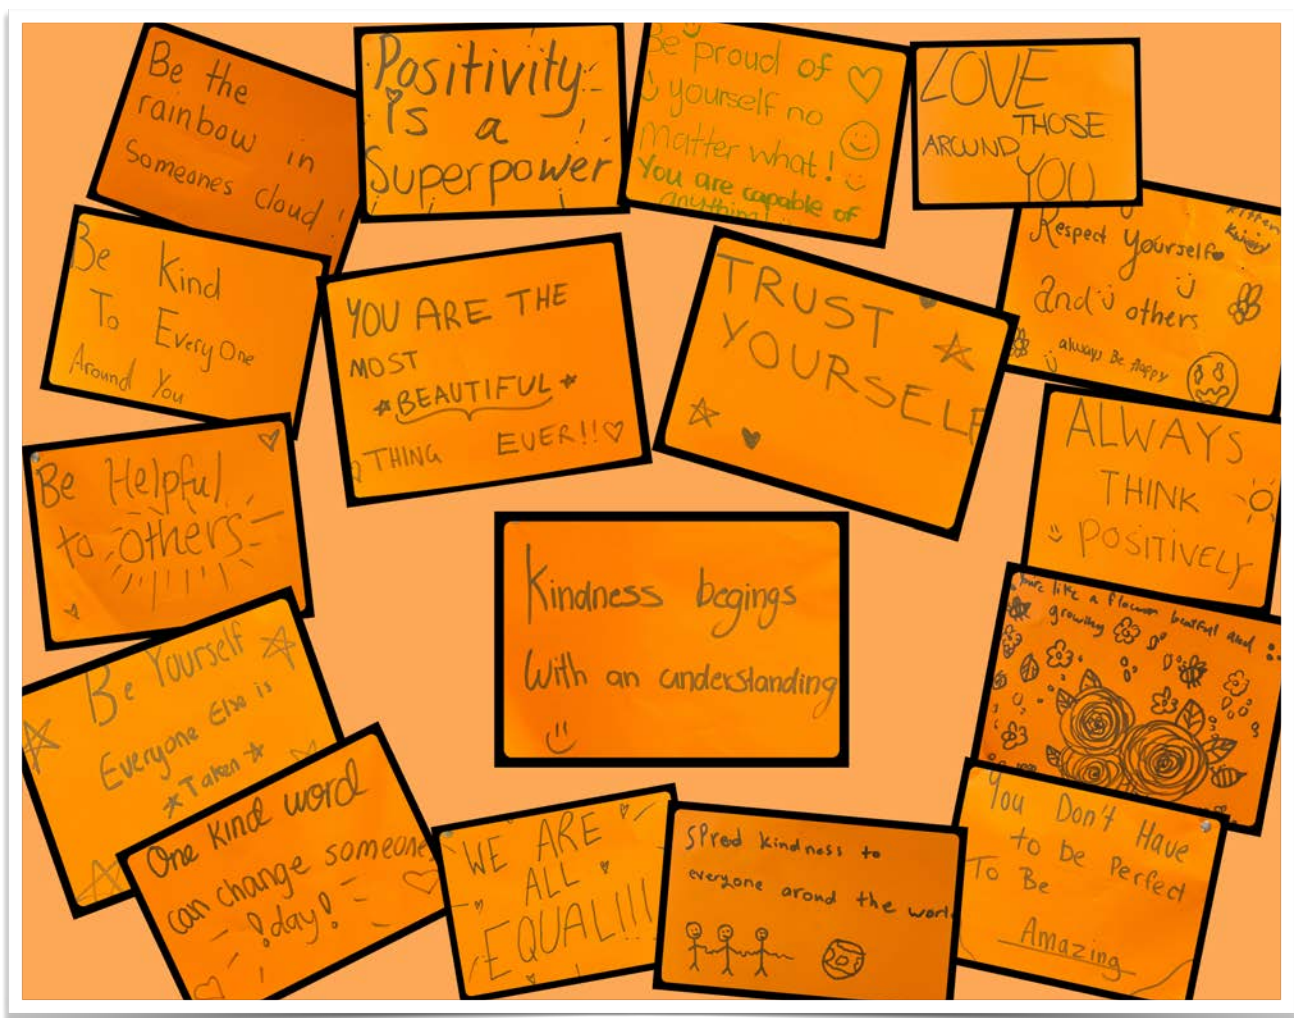 Be the
rainbow in
someones cloud!
Positivity
is a
Superpower
Be proud of
yourself no
matter what!
You are capable of
anything!
LOVE
THOSE
AROUND
YOU
Be Kind
To EveryOne
Around You
YOU ARE THE
MOST
BEAUTIFUL
THING EVER!!
TRUST
YOURSELF
Respect yourself
and others
always Be Happy
Be Helpful
to others
ALWAYS
THINK
POSITIVELY
Kindness begings
With an understanding
Be Yourself
Everyone Else is
Taken
growing
One kind word
can change someones
day!
WE ARE
ALL
EQUAL!!!
SPred kindness to
everyone arond the world
You Don't Have
to be Perfect
To Be
Amazing